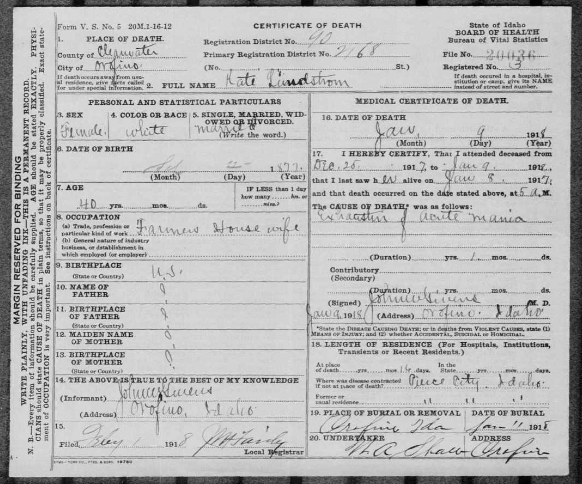 Form V. S. No. 5 20M-1-16-12
CERTIFICATE OF DEATH
State of Idaho
BOARD OF HEALTH
Bureau of Vital Statistics
1. PLACE OF DEATH.
County of Clearwater
City of Orofino
Registration District No. 90
Primary Registration District No. 2168
(No. St.)
File No. 20036
Registered No. 3
If death occurs away from usual residence, give facts called for under special information.
2. FULL NAME Kate Lindstrom
If death occurred in a hospital, institution or camp, give its NAME instead of street and number.
PERSONAL AND STATISTICAL PARTICULARS
3. SEX
Female
4. COLOR OR RACE
white
5. SINGLE, MARRIED, WIDOWED OR DIVORCED.
married
(Write the word.)
6. DATE OF BIRTH
1877
(Month) (Day) (Year)
7. AGE
40 yrs. mos. ds.
IF LESS than 1 day how many hrs. or min?
8. OCCUPATION
(a) Trade, profession or particular kind of work Farmers House wife
(b) General nature of industry business, or establishment in which employed (or employer)
9. BIRTHPLACE
(State or Country) U.S.
10. NAME OF FATHER ?
11. BIRTHPLACE OF FATHER
(State or Country) ?
12. MAIDEN NAME OF MOTHER ?
13. BIRTHPLACE OF MOTHER
(State or Country) ?
14. THE ABOVE IS TRUE TO THE BEST OF MY KNOWLEDGE
(Informant) John W Givens
(Address) Orofino, Idaho
15.
Filed Feby 1 1918
Local Registrar
MEDICAL CERTIFICATE OF DEATH.
16. DATE OF DEATH
Jan 9 1918
(Month) (Day) (Year)
17. I HEREBY CERTIFY, That I attended deceased from
Dec. 25 1917 to Jan 9 1918,
that I last saw her alive on Jan 8, 191
and that death occurred on the date stated above, at 5 A. M.
The CAUSE OF DEATH* was as follows:
Exhaustion of acute mania
(Duration) yrs. 1 mos. ds.
Contributory
(Secondary)
(Duration) yrs. mos. ds.
(Signed) John W Givens M. D.
Jan 9 1918 (Address) Orofino Idaho
*State the DISEASE CAUSING DEATH; or in deaths from VIOLENT CAUSES, state (1) MEANS OF INJURY; and (2) whether ACCIDENTAL, SUICIDAL, or HOMICIDAL.
18. LENGTH OF RESIDENCE (For Hospitals, Institutions, Transients or Recent Residents.)
At place of death yrs. mos 16 days. In State yrs. mos. days
Where was disease contracted if not at place of death? Pierce City, Idaho
Former or usual residence " " "
19. PLACE OF BURIAL OR REMOVAL
Orofino Ida
DATE OF BURIAL
Jan 11 1918
20. UNDERTAKER
M. A. Shaw
ADDRESS
Orofino
MARGIN RESERVED FOR BINDING
WRITE PLAINLY, WITH UNFADING INK—THIS IS A PERMANENT RECORD.
N. B.—Every item of information should be carefully supplied. AGE should be stated EXACTLY. PHYSICIANS should state CAUSE OF DEATH in plain terms, so that it may be properly classified. Exact statement of OCCUPATION is very important. See instructions on back of certificate.